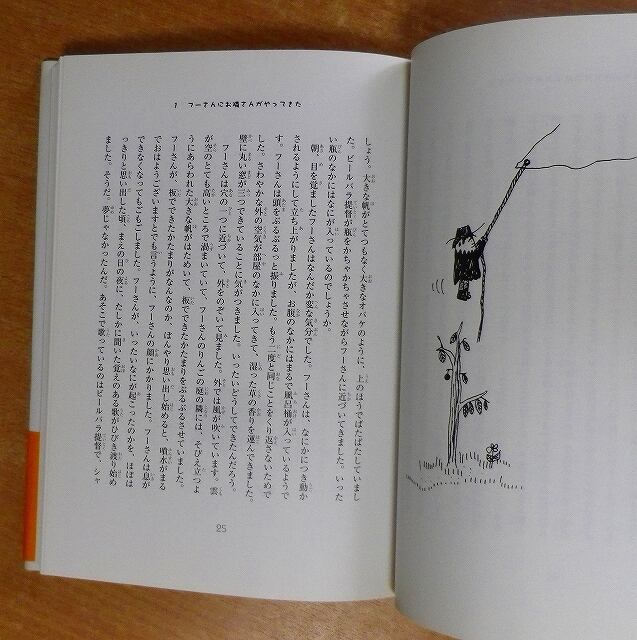 1　フーさんにお隣さんがやってきた
しょう。大きな帆がとてつもなく大きなオバケのように、上のほうでばたばたしていまし
た。ビールバラ提督が瓶をかちゃかちゃさせながらフーさんに近づいてきました。いった
い瓶のなかにはなにが入っているのでしょうか。
朝、目を覚ましたフーさんはなんだか変な気分でした。フーさんは、なにかにつき動か
されるようにして立ち上がりましたが、お腹のなかにはまるで風呂桶が入っているようで
す。フーさんは頭をぶるぶるっと振りました。もう二度と同じことをくり返さないためで
した。さわやかな外の空気が部屋のなかに入ってきて、湿った草の香りを運んできました。
壁に丸い窓が三つできていることに気がつきました。いったいどうしてできたんだろう。
フーさんは穴の一つに近づいて、外をのぞいて見ました。外では風が吹いています。雲
が空のとても高いところで渦まいていて、フーさんのりんごの庭の隣には、そびえ立つよ
うにあらわれた大きな帆がはためいて、板でできたかたまりをぶるぶるさせていました。
フーさんが、板でできたかたまりがなんなのか、ぼんやり思い出し始めると、噴水がまる
でおはようございますとでも言うように、フーさんの顔にかかりました。フーさんは息が
できなくなってもごもごしました。フーさんが、いったいなにが起こったのかを、ほぼは
っきりと思い出した頃、まえの日の夜に、たしかに聞いた覚えのある歌がひびき渡り始め
ました。そうだ。夢じゃなかったんだ。あそこで歌っているのはビールバラ提督で、シャ
25